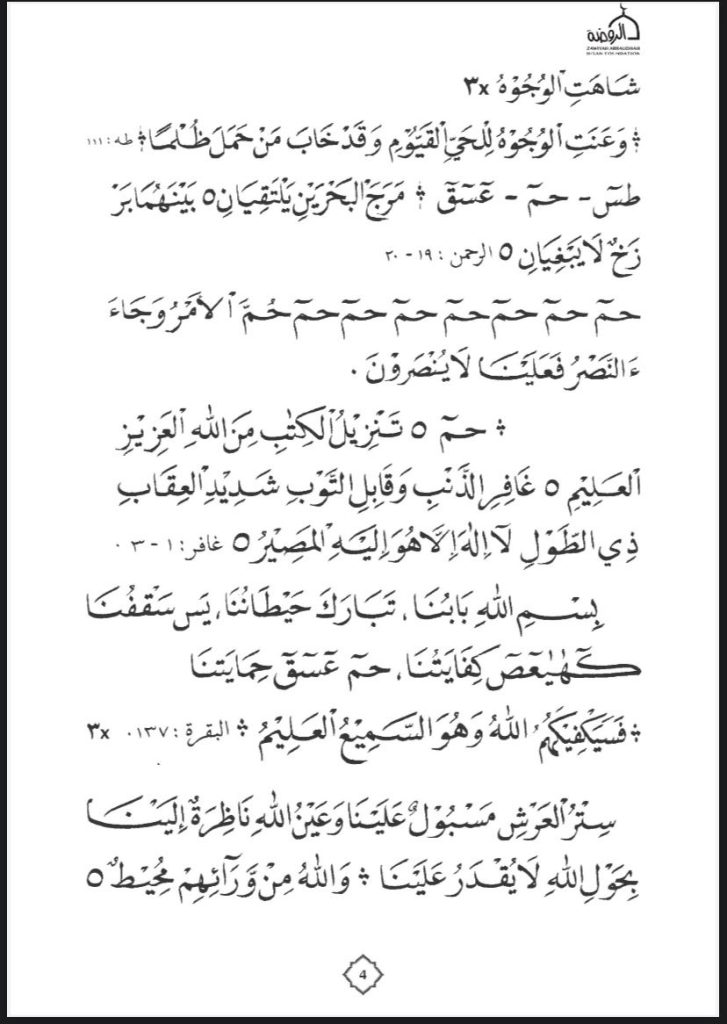 الروضة
ZAWIYAH ARRAUDHAH
IHSAN FOUNDATION
شَاهَتِ الْوُجُوْهُ ٣x
﴿ وَعَنَتِ الْوُجُوْهُ لِلْحَيِّ الْقَيُّوْمِ وَقَدْ خَابَ مَنْ حَمَلَ ظُلْمًا ﴾ طه: ١١١
طسٓ - حمٓ - عٓسٓقٓ ﴿ مَرَجَ الْبَحْرَيْنِ يَلْتَقِيَانِ ۝ بَيْنَهُمَا بَرْ
زَخٌ لَا يَبْغِيَانِ ۝ الرحمن: ١٩ - ٢٠
حمٓ حمٓ حمٓ حمٓ حمٓ حمٓ حمٓ حُمَّ الْأَمْرُ وَجَاءَ
ءَ النَّصْرُ فَعَلَيْنَا لَا يُنْصَرُوْنَ .
﴿ حمٓ ۝ تَنْزِيْلُ الْكِتٰبِ مِنَ اللهِ الْعَزِيْزِ
الْعَلِيْمِ ۝ غَافِرِ الذَّنْبِ وَقَابِلِ التَّوْبِ شَدِيْدِ الْعِقَابِ
ذِي الطَّوْلِ لَآ اِلٰهَ اِلَّا هُوَ اِلَيْهِ الْمَصِيْرُ ۝ غافر: ١ - ٣ ٠
بِسْمِ اللهِ بَابُنَا، تَبَارَكَ حَيْطَانُنَا، يَس سَقْفُنَا
كٓهٰيٰعٓصٓ كِفَايَتُنَا، حمٓ عٓسٓقٓ حِمَايَتنَا
﴿ فَسَيَكْفِيْكَهُمُ اللهُ وَهُوَ السَّمِيْعُ الْعَلِيْمُ ﴾ البقرة: ١٣٧ ٠ ٣x
سِتْرُ الْعَرْشِ مَسْبُوْلٌ عَلَيْنَا وَعَيْنُ اللهِ نَاظِرَةٌ إِلَيْنَا
بِحَوْلِ اللهِ لَا يُقْدَرُ عَلَيْنَا ﴿ وَاللهُ مِنْ وَّرَآئِهِمْ مُحِيْطٌ ۝
4